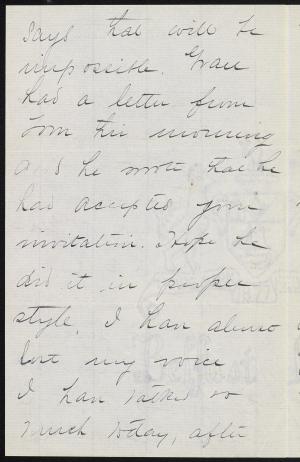 says that will be
impossible. Grace
had a letter from
Tom this morning
and he wrote that he
has accepted your
invitation. I hope he
did it in proper
style. I have almost
lost my voice
I have talked so
much today, after